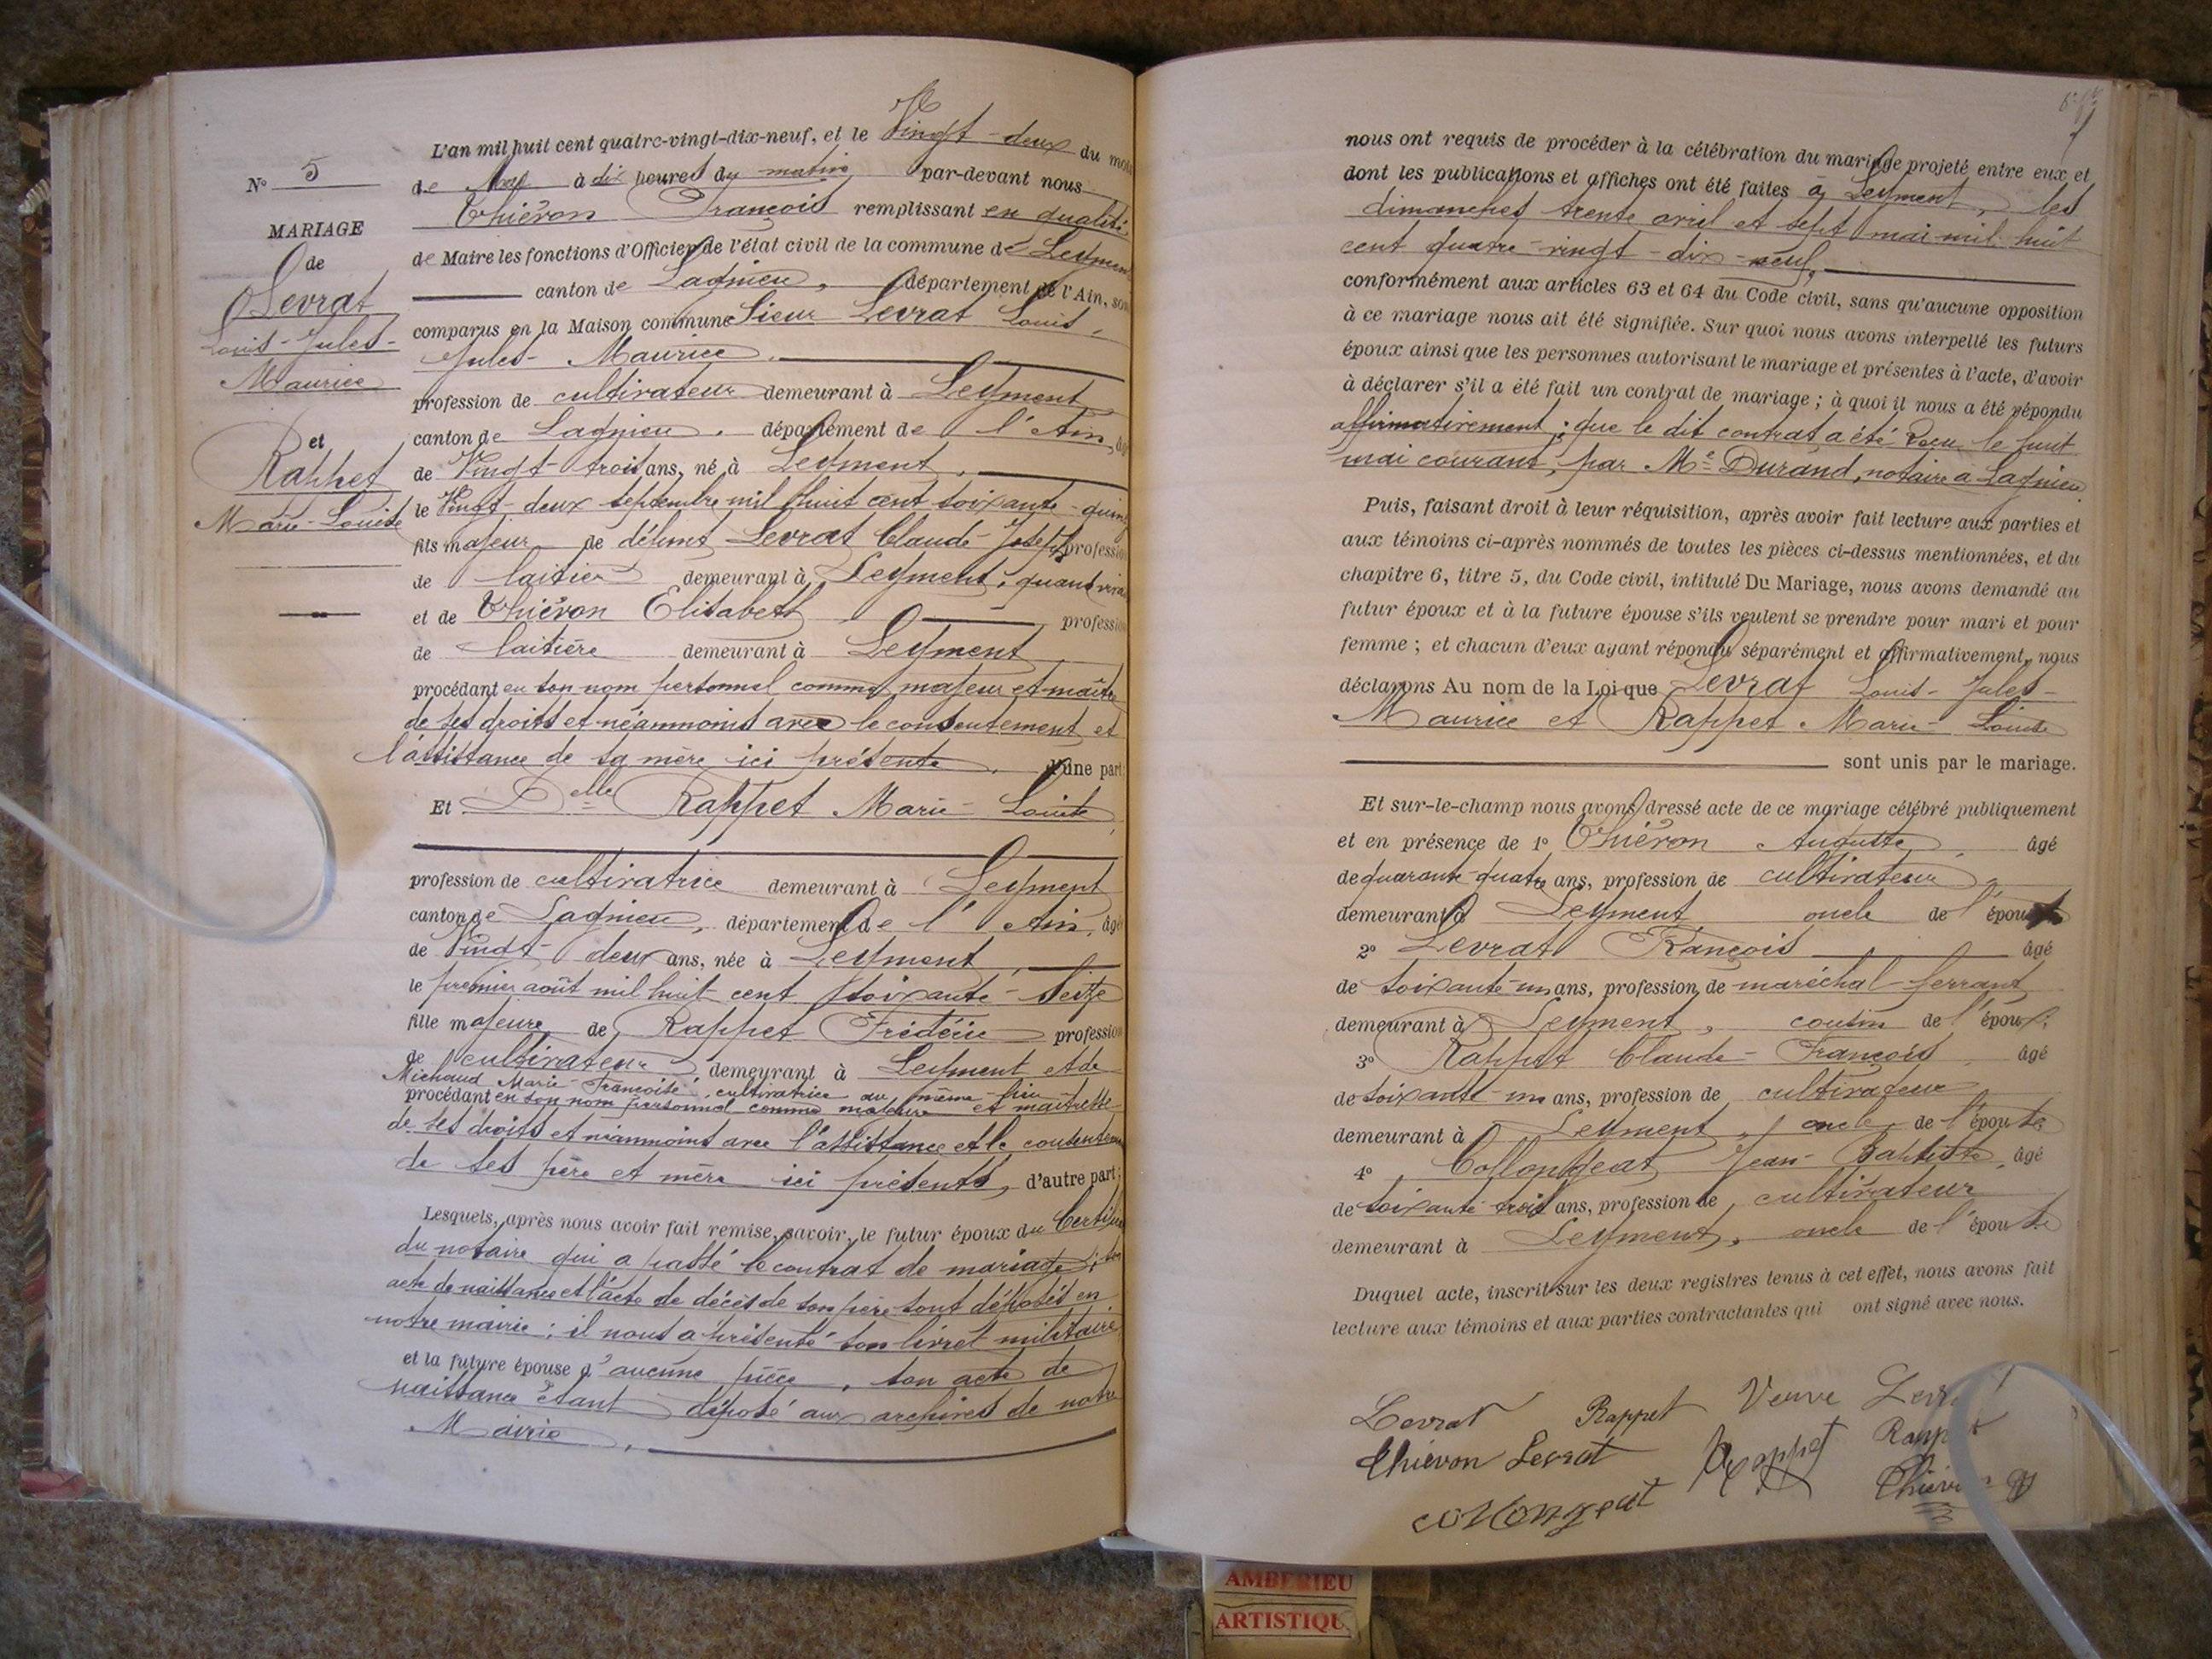 N° 5
MARIAGE
de
Levrat
Louis-Jules-
Maurice
et
Rappet
Marie-Louise
L'an mil huit cent quatre-vingt-dix-neuf, et le Vingt-deux du mois
de Mai à dix heures du matin par-devant nous
Thiévon François remplissant en qualité
de Maire les fonctions d'Officier de l'état civil de la commune de Leyment
canton de Lagnieu, département de l'Ain, sont
comparus en la Maison commune Sieur Levrat Louis-
Jules-Maurice
profession de cultivateur demeurant à Leyment
canton de Lagnieu, département de l'Ain, âgé
de Vingt-trois ans, né à Leyment,
le Vingt-deux septembre mil huit cent soixante-quinze
fils majeur de défunt Levrat Claude-Joseph profession
de laitier demeurant à Leyment, quand vivait
et de Thiévon Elisabeth profession
de laitière demeurant à Leyment
procédant en son nom personnel comme majeur et maître
de ses droits et néammoins avec le consentement et
l'assistance de sa mère ici présente, d'une part;
Et Delle Rappet Marie-Louise,
profession de cultivatrice demeurant à Leyment
canton de Lagnieu, département de l'Ain, âgée
de Vingt-deux ans, née à Leyment,
le premier août mil huit cent soixante-seize
fille majeure de Rappet Frédéric profession
de cultivateur demeurant à Leyment et de
Michaud Marie-Françoise, cultivatrice au même lieu
procédant en son nom personnel comme majeure et maîtresse
de ses droits et néammoins avec l'assistance et le consentement
de ses père et mère ici présents, d'autre part;
Lesquels, après nous avoir fait remise, savoir, le futur époux du Certificat
du notaire qui a passé le contrat de mariage; son
acte de naissance et l'acte de décès de son père sont déposés en
notre mairie; il nous a présenté son livret militaire
et la future épouse d'aucune pièce, son acte de
naissance étant déposé aux archives de notre
Mairie.
nous ont requis de procéder à la célébration du mariage projeté entre eux et
dont les publications et affiches ont été faites à Leyment, les
dimanches trente avril et sept mai mil huit
cent quatre-vingt-dix-neuf,
conformément aux articles 63 et 64 du Code civil, sans qu'aucune opposition
à ce mariage nous ait été signifiée. Sur quoi nous avons interpellé les futurs
époux ainsi que les personnes autorisant le mariage et présentes à l'acte, d'avoir
à déclarer s'il a été fait un contrat de mariage; à quoi il nous a été répondu
affirmativement; que le dit contrat a été reçu le huit
mai courant, par Me Durand, notaire a Lagnieu
Puis, faisant droit à leur réquisition, après avoir fait lecture aux parties et
aux témoins ci-après nommés de toutes les pièces ci-dessus mentionnées, et du
chapitre 6, titre 5, du Code civil, intitulé Du Mariage, nous avons demandé au
futur époux et à la future épouse s'ils veulent se prendre pour mari et pour
femme; et chacun d'eux ayant répondu séparément et affirmativement, nous
déclarons Au nom de la Loi que Levrat Louis-Jules-
Maurice et Rappet Marie-Louise
sont unis par le mariage.
Et sur-le-champ nous avons dressé acte de ce mariage célébré publiquement
et en présence de 1° Thiévon Auguste, âgé
de quarante-quatre ans, profession de cultivateur
demeurant à Leyment oncle de l'époux
2° Levrat François âgé
de soixante-un ans, profession de maréchal-ferrant
demeurant à Leyment, cousin de l'époux;
3° Rappet Claude-François âgé
de soixante-un ans, profession de cultivateur
demeurant à Leyment, oncle de l'épouse
4° Collongeat Jean-Baptiste, âgé
de soixante-trois ans, profession de cultivateur
demeurant à Leyment, oncle de l'épouse
Duquel acte, inscrit sur les deux registres tenus à cet effet, nous avons fait
lecture aux témoins et aux parties contractantes qui ont signé avec nous.
Levrat Rappet Veuve Levrat
Thiévon Levrat Rappet Rappet
collongeat Thiévon
AMBERIEU
ARTISTIQU